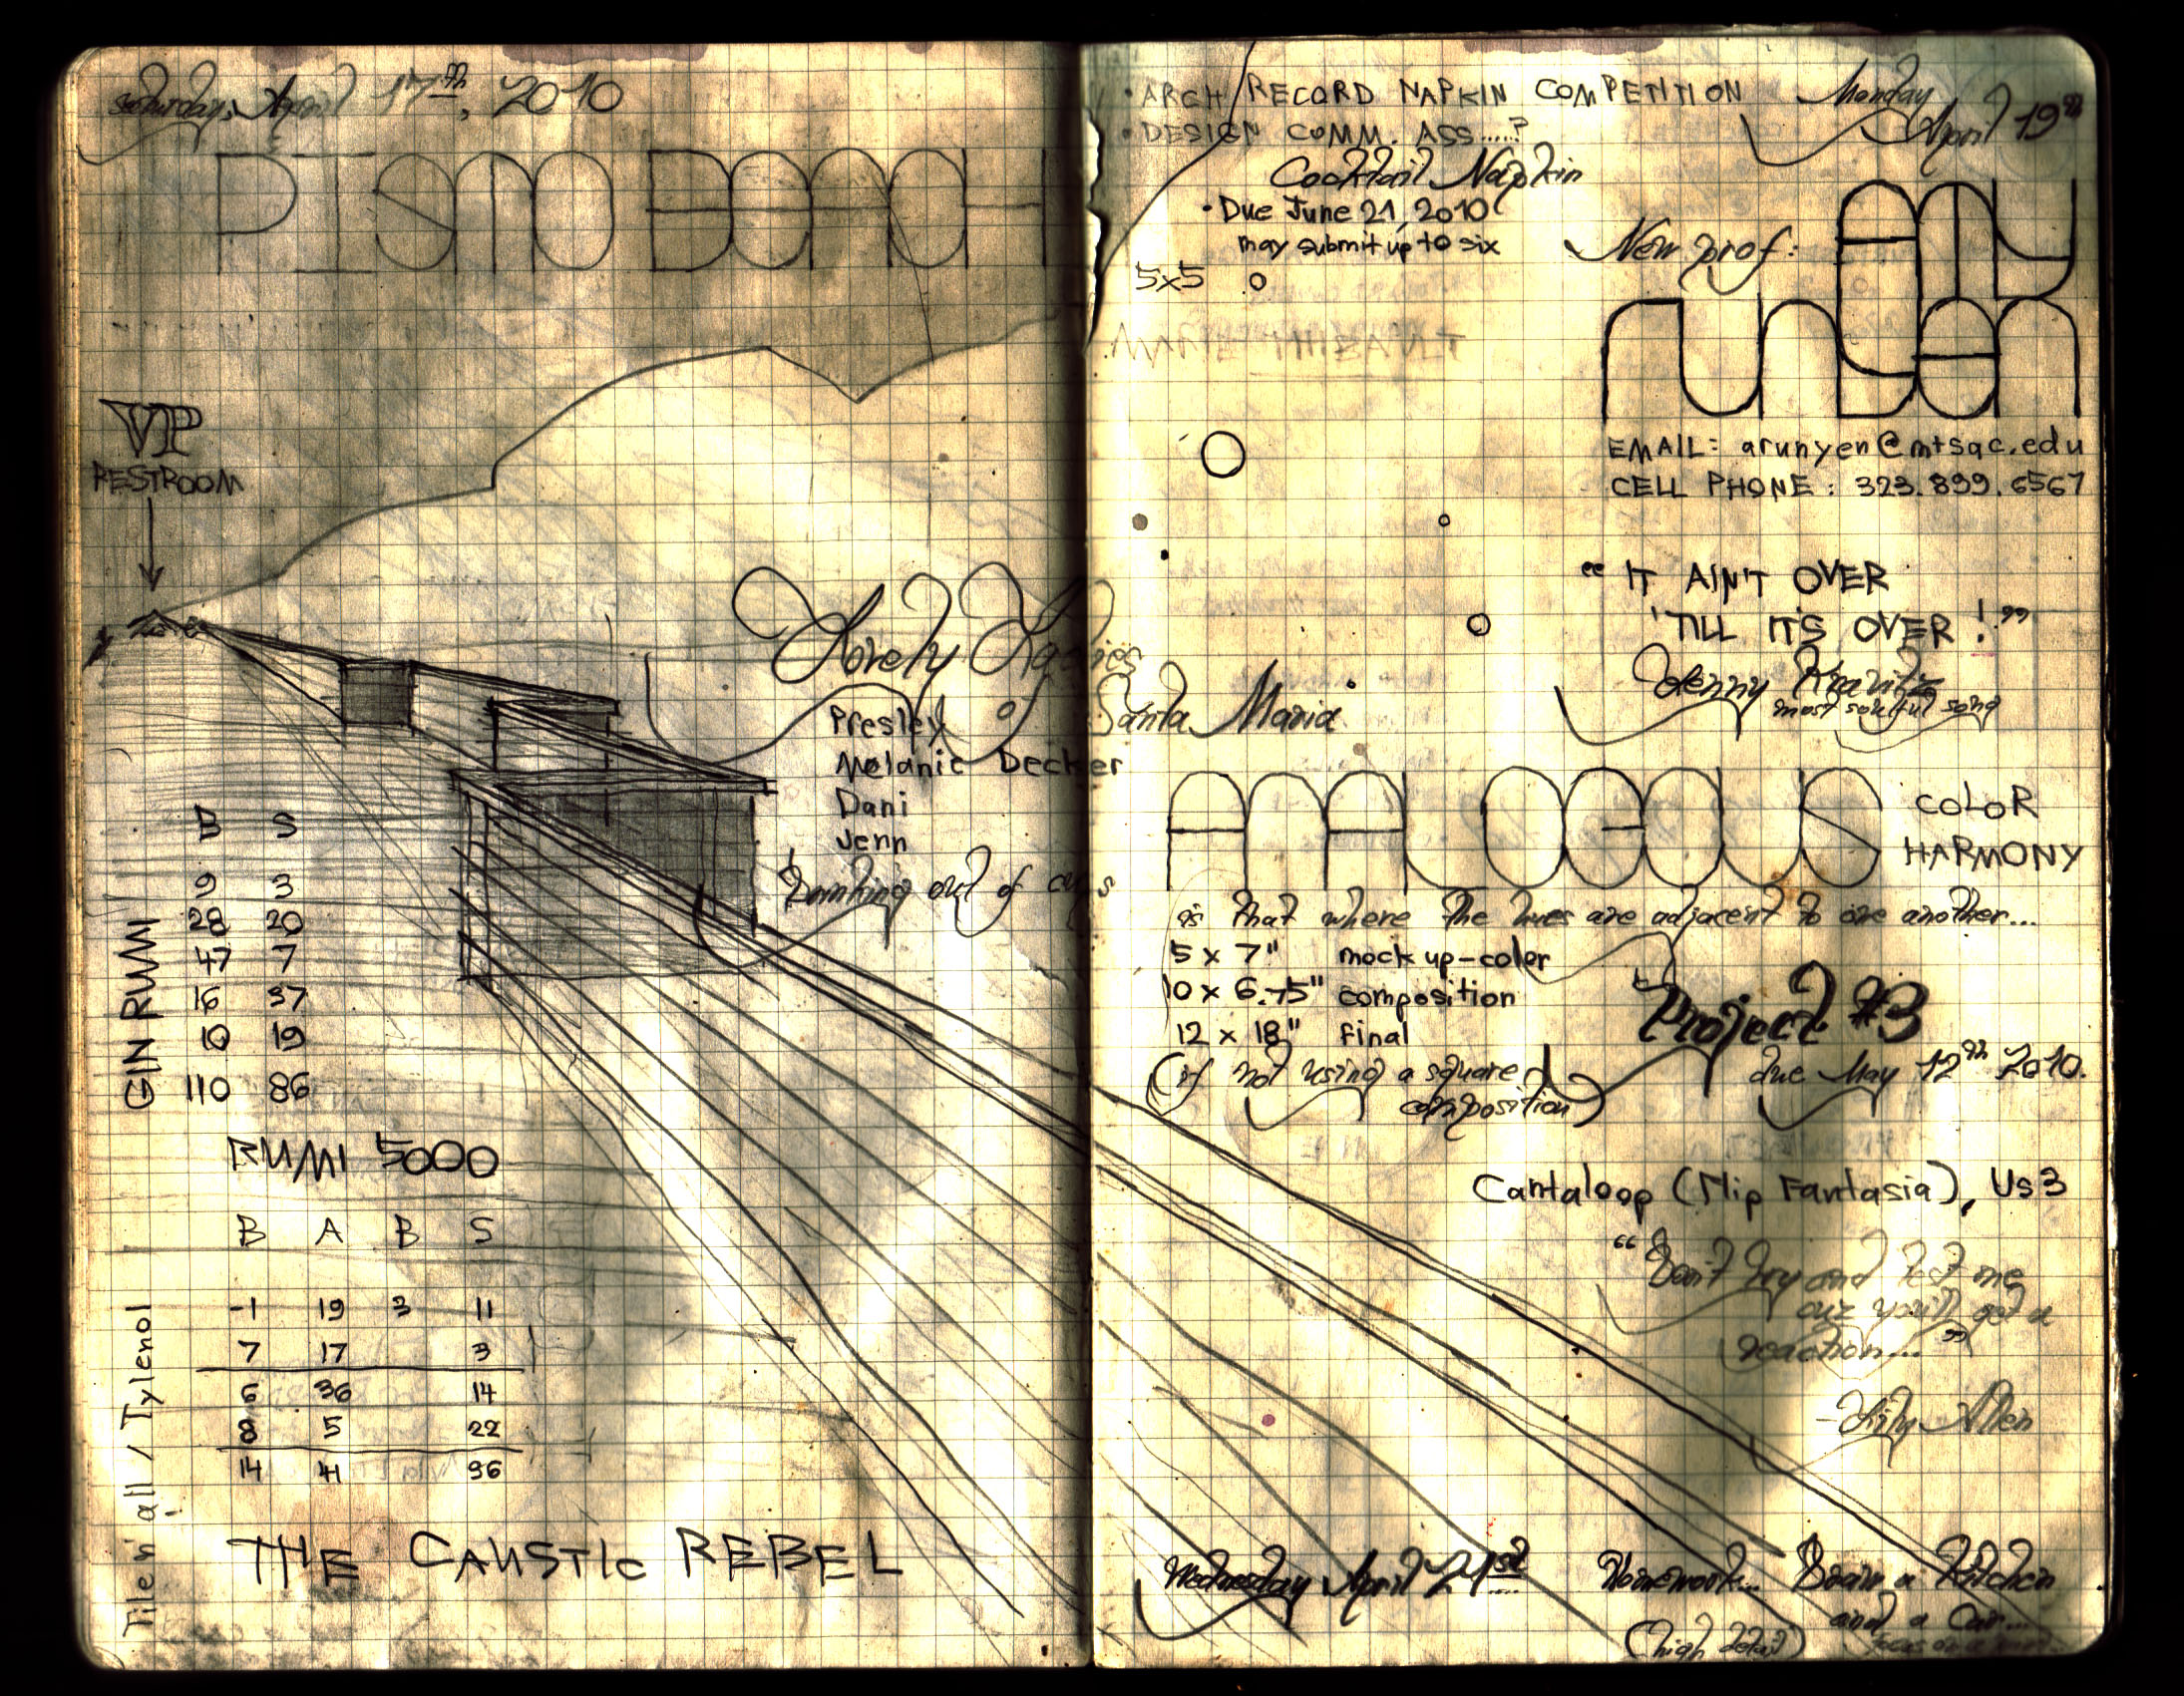 Saturday, April 17th, 2010
PISMO BEACH
VP
RESTROOM
Lovely Ladies
Santa Maria
Presley
Melanie Decker
Dani
Jenn
Drinking out of cups
GIN RUMI
B S
9 3
28 20
47 7
16 37
10 19
110 86
RUMI 5000
B A B S
-1 19 3 11
7 17 3
6 36 14
8 5 22
14 41 36
Tilen' all / Tylenol
THE CAUSTIC REBEL
• ARCH RECORD NAPKIN COMPETITION
• DESIGN COMM. ASS.....?
Cocktail Napkin
• Due June 21, 2010
may submit up to six
5x5
Monday
April 19th
New prof:
AMY
runyen
MARIE THIBAULT
EMAIL: arunyen@mtsac.edu
CELL PHONE: 323.899.6567
"IT AIN'T OVER
'TILL IT'S OVER!"
Lenny Kravitz
most soulful song
ANALOGOUS COLOR
HARMONY
is that where the hues are adjacent to one another...
5 x 7" mock up-color
10 x 6.75" composition
12 x 18" final
(if not using a squared
composition)
Project #3
due May 12th 2010.
Cantaloop (Flip Fantasia), Us3
"Don't try and test me
cuz you'll get a
reaction..."
-Lily Allen
Wednesday April 21st... Homework... Draw a Kitchen
and a Car...
(high detail)